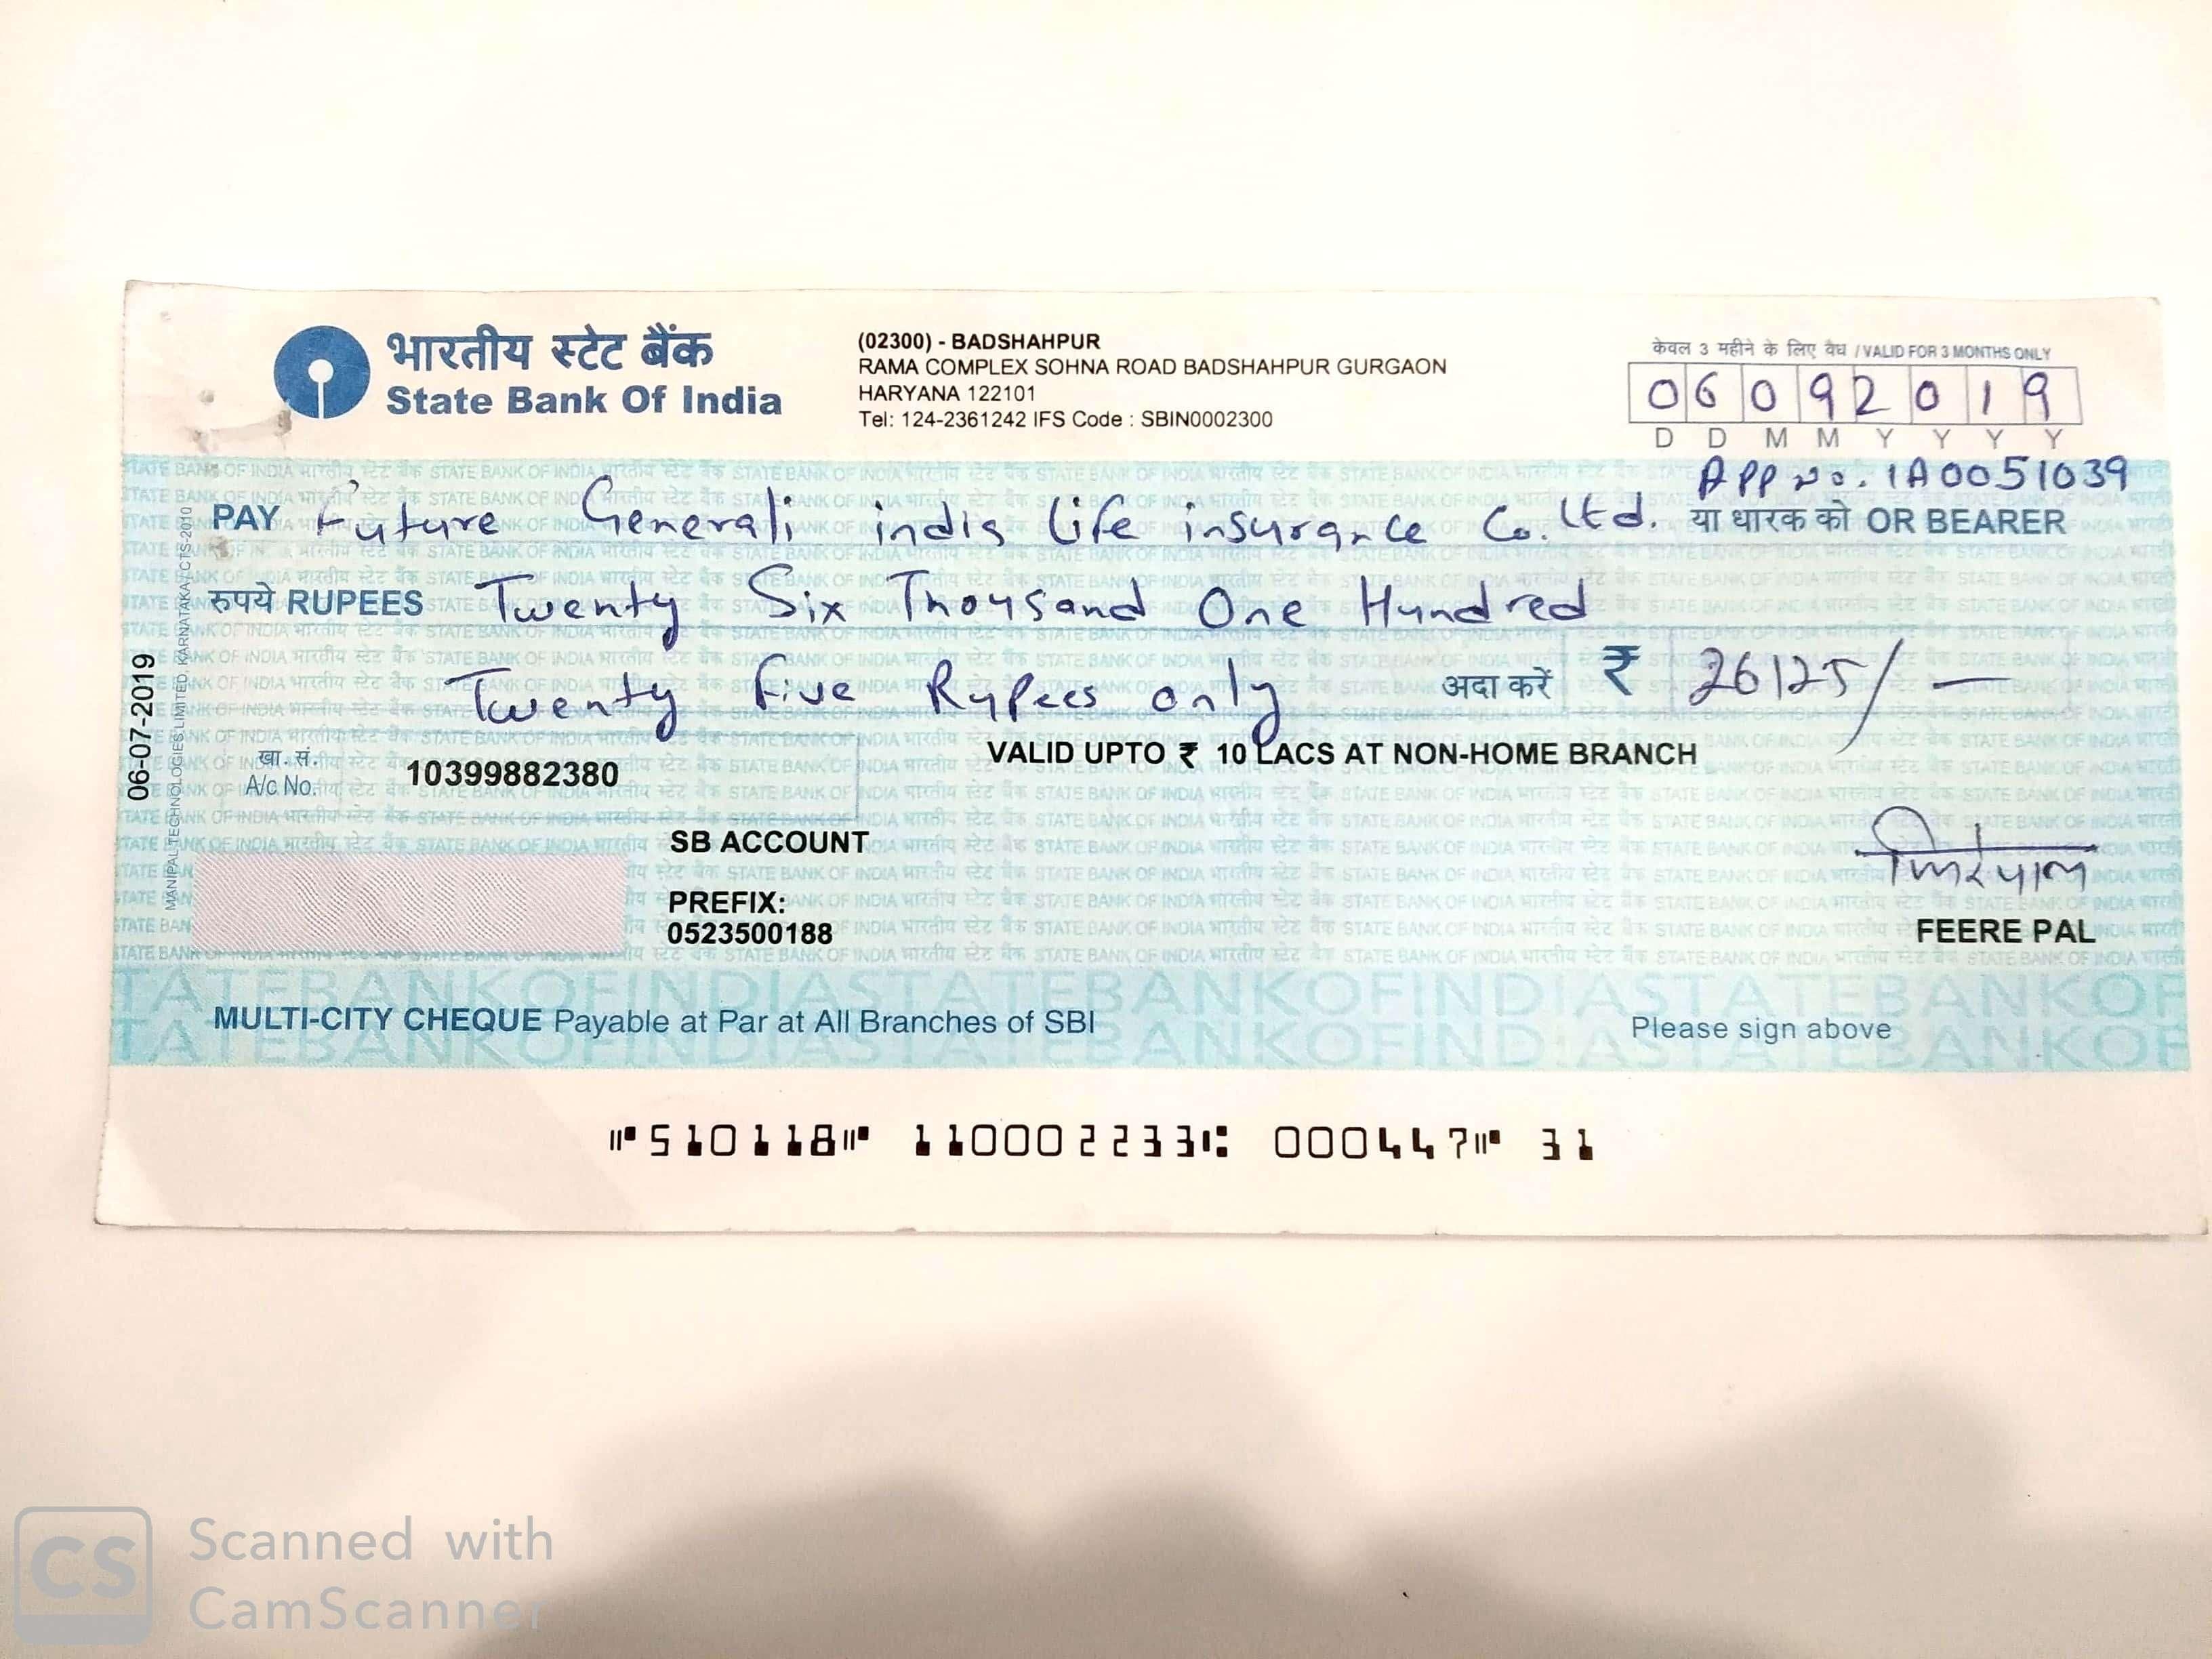 भारतीय स्टेट बैंक
State Bank Of India
(02300) - BADSHAHPUR
RAMA COMPLEX SOHNA ROAD BADSHAHPUR GURGAON
HARYANA 122101
Tel: 124-2361242 IFS Code : SBIN0002300
केवल 3 महीने के लिए वैध / VALID FOR 3 MONTHS ONLY
06092019
D D M M Y Y Y Y
APP No. 1A0051039
PAY Future Generali india life insurance Co. Ltd. या धारक को OR BEARER
रुपये RUPEES Twenty Six Thousand One Hundred
Twenty Five Rupees only अदा करें ₹ 26125/-
VALID UPTO ₹ 10 LACS AT NON-HOME BRANCH
खा. सं.
A/c No. 10399882380
06-07-2019
MANIPAL TECHNOLOGIES LIMITED, KARNATAKA/CTS-2010
SB ACCOUNT
PREFIX:
0523500188
FEERE PAL
MULTI-CITY CHEQUE Payable at Par at All Branches of SBI
Please sign above
⑈510118⑈ 110002233⑆ 000447⑈ 31
CS
Scanned with
CamScanner